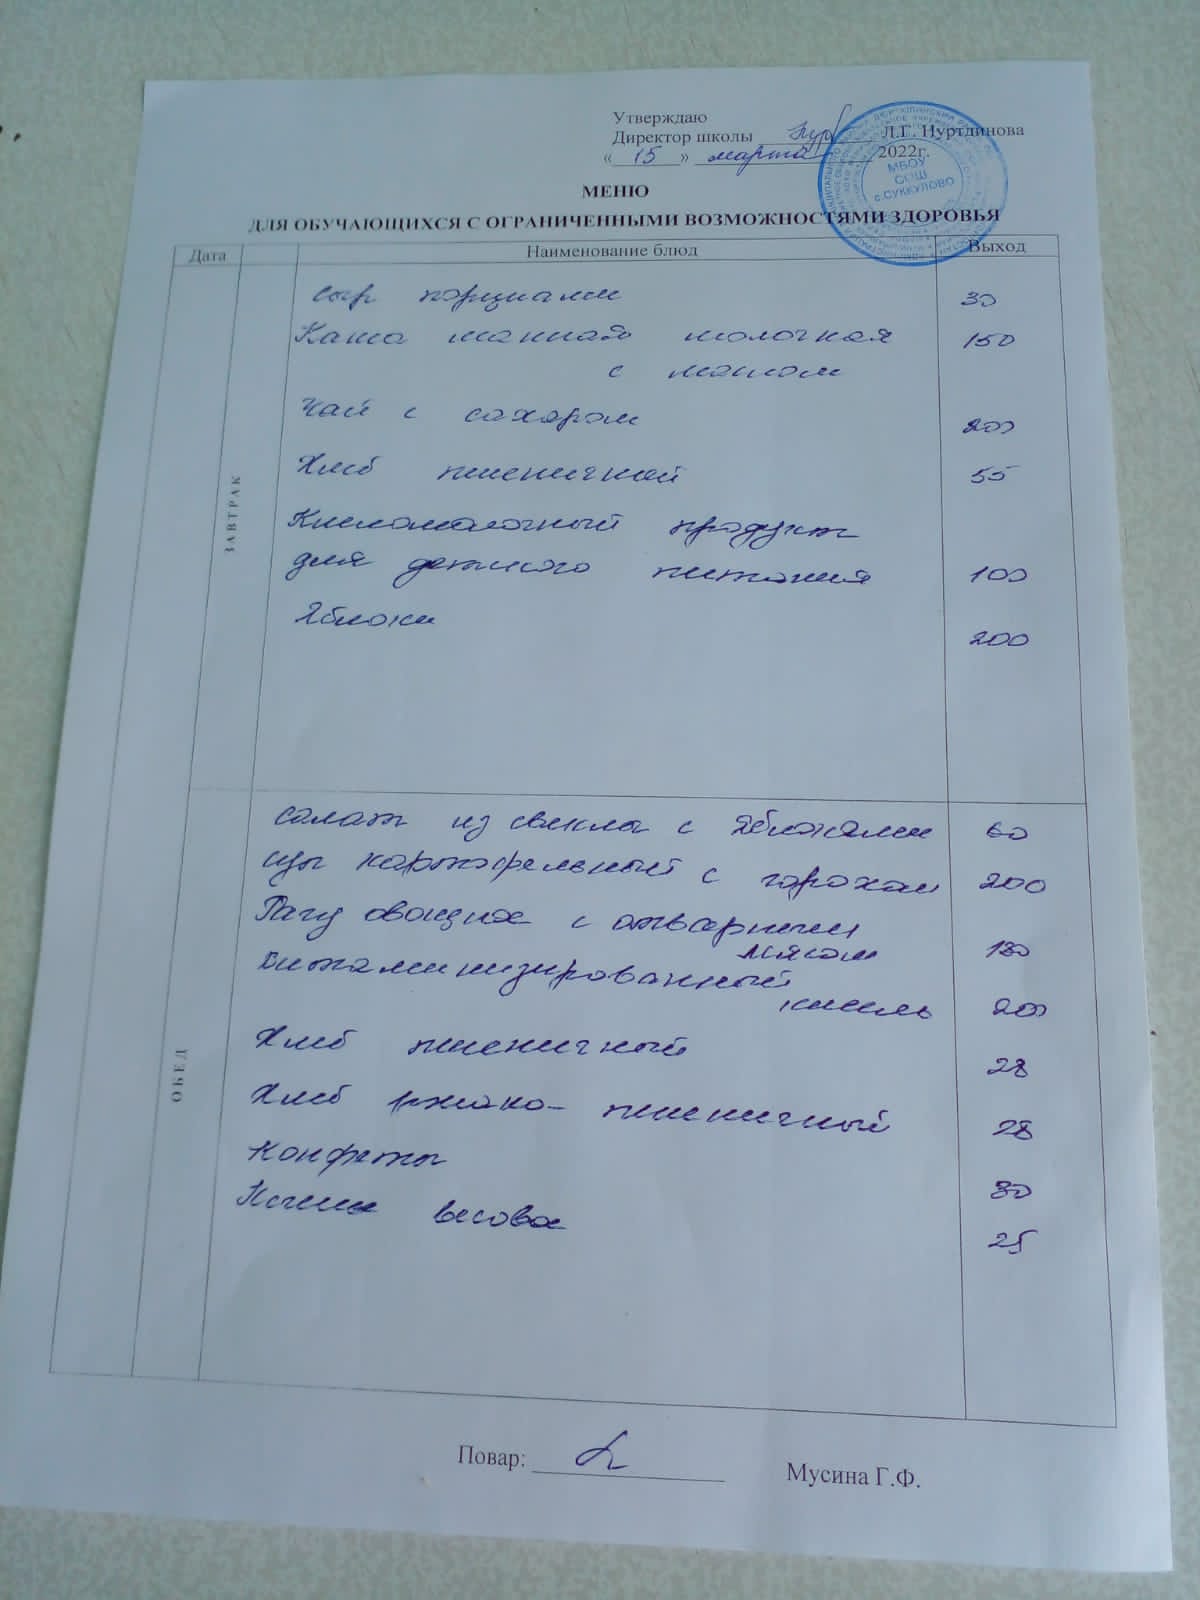 Утверждаю
Директор школы Л.Г. Нуртдинова
« 15 » марта 2022г.
МБОУ
СОШ
с.СУККУЛОВО
МЕНЮ
ДЛЯ ОБУЧАЮЩИХСЯ С ОГРАНИЧЕННЫМИ ВОЗМОЖНОСТЯМИ ЗДОРОВЬЯ
Дата Наименование блюд Выход
ЗАВТРАК
сыр порциями 30
Каша манная молочная 150
с маслом
Чай с сахаром 200
Хлеб пшеничной 55
Кисломолочный продукт
для детского питания 100
Яблоки 200
ОБЕД
салат из свеклы с яблоками 60
суп картофельный с горохом 200
Рагу овощное с отварным
мясом 180
Витаминизированный
кисель 200
Хлеб пшеничный 28
Хлеб ржано- пшеничный 28
Конфеты 30
весовое 25
Повар: Мусина Г.Ф.